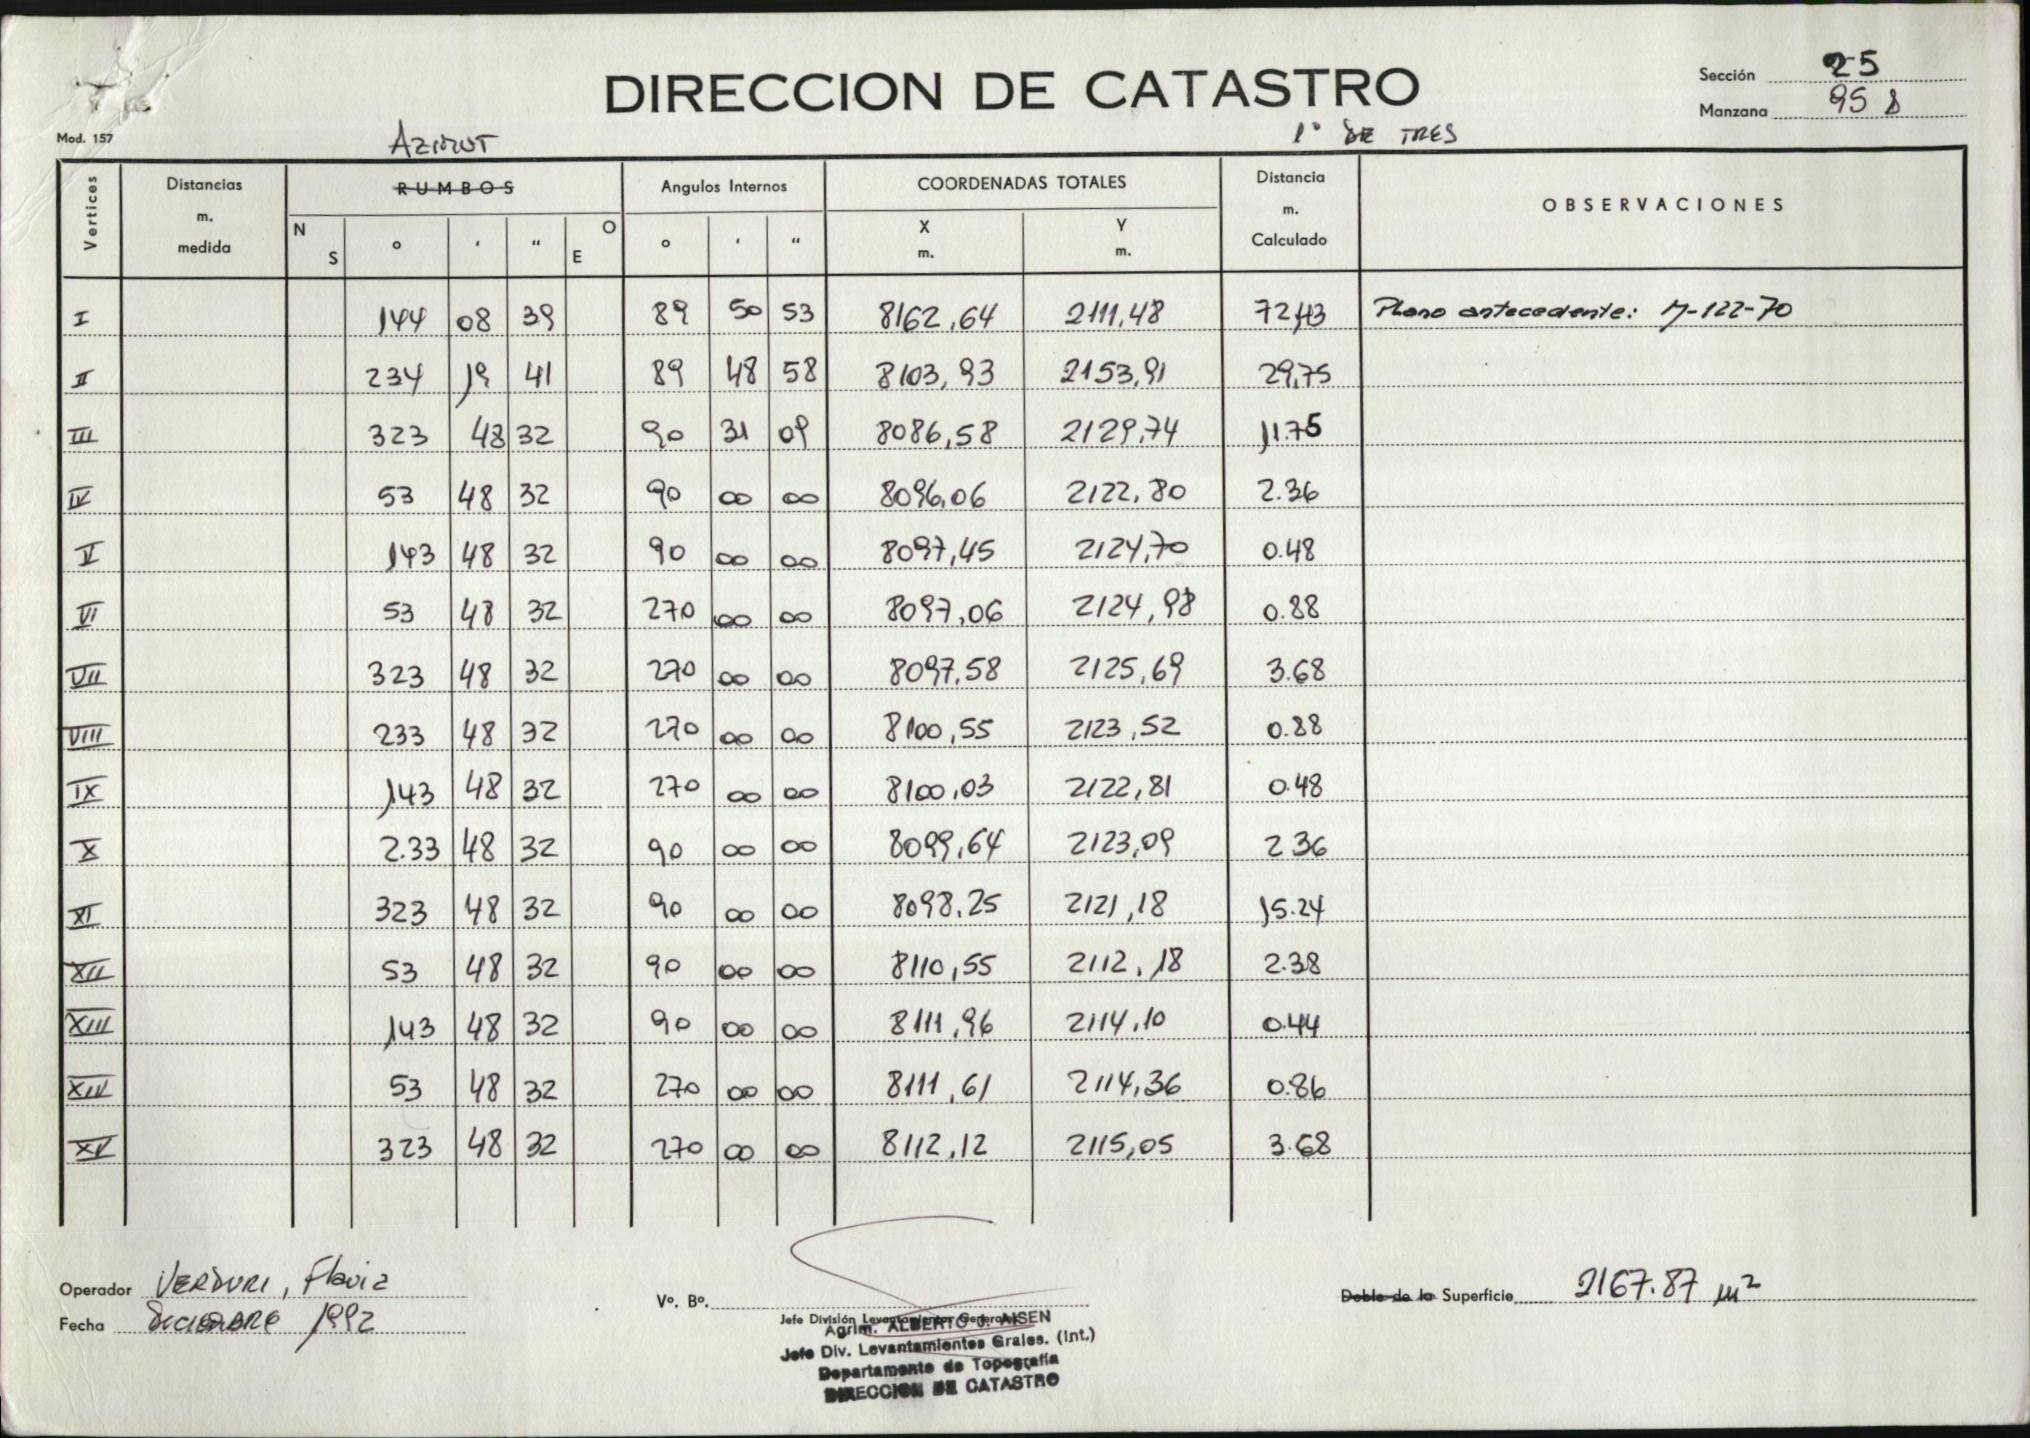 DIRECCION DE CATASTRO
Sección 25
Manzana 95 B
Mod. 157
AZIMUT
1° DE TRES
Vertices Distancias m. medida RUMBOS Angulos Internos COORDENADAS TOTALES Distancia m. Calculado OBSERVACIONES
N S ° ' " O E ° ' " X m. Y m.
I 144 08 39 89 50 53 8162,64 2111,48 72,43 Plano antecedente: M-122-70
II 234 19 41 89 48 58 8103,93 2153,91 29,75
III 323 48 32 90 31 09 8086,58 2129,74 11.75
IV 53 48 32 90 00 00 8096,06 2122,80 2.36
V 143 48 32 90 00 00 8097,45 2124,70 0.48
VI 53 48 32 270 00 00 8097,06 2124,98 0.88
VII 323 48 32 270 00 00 8097,58 2125,69 3.68
VIII 233 48 32 270 00 00 8100,55 2123,52 0.88
IX 143 48 32 270 00 00 8100,03 2122,81 0.48
X 2.33 48 32 90 00 00 8099,64 2123,09 2 36
XI 323 48 32 90 00 00 8098.25 2121,18 15.24
XII 53 48 32 90 00 00 8110,55 2112,18 2.38
XIII 143 48 32 90 00 00 8111,96 2114,10 0.44
XIV 53 48 32 270 00 00 8111,61 2114,36 0.86
XV 323 48 32 270 00 00 8112,12 2115,05 3.68
Operador VERDURI, Flavia
Fecha DICIEMBRE 1992
Vº. Bº.
Jefe División Levantamientos Generales
Agrim. ALBERTO J. AISEN
Jefe Div. Levantamientos Grales. (Int.)
Departamento de Topografía
DIRECCION DE CATASTRO
Doble de la Superficie 2167.87 m²